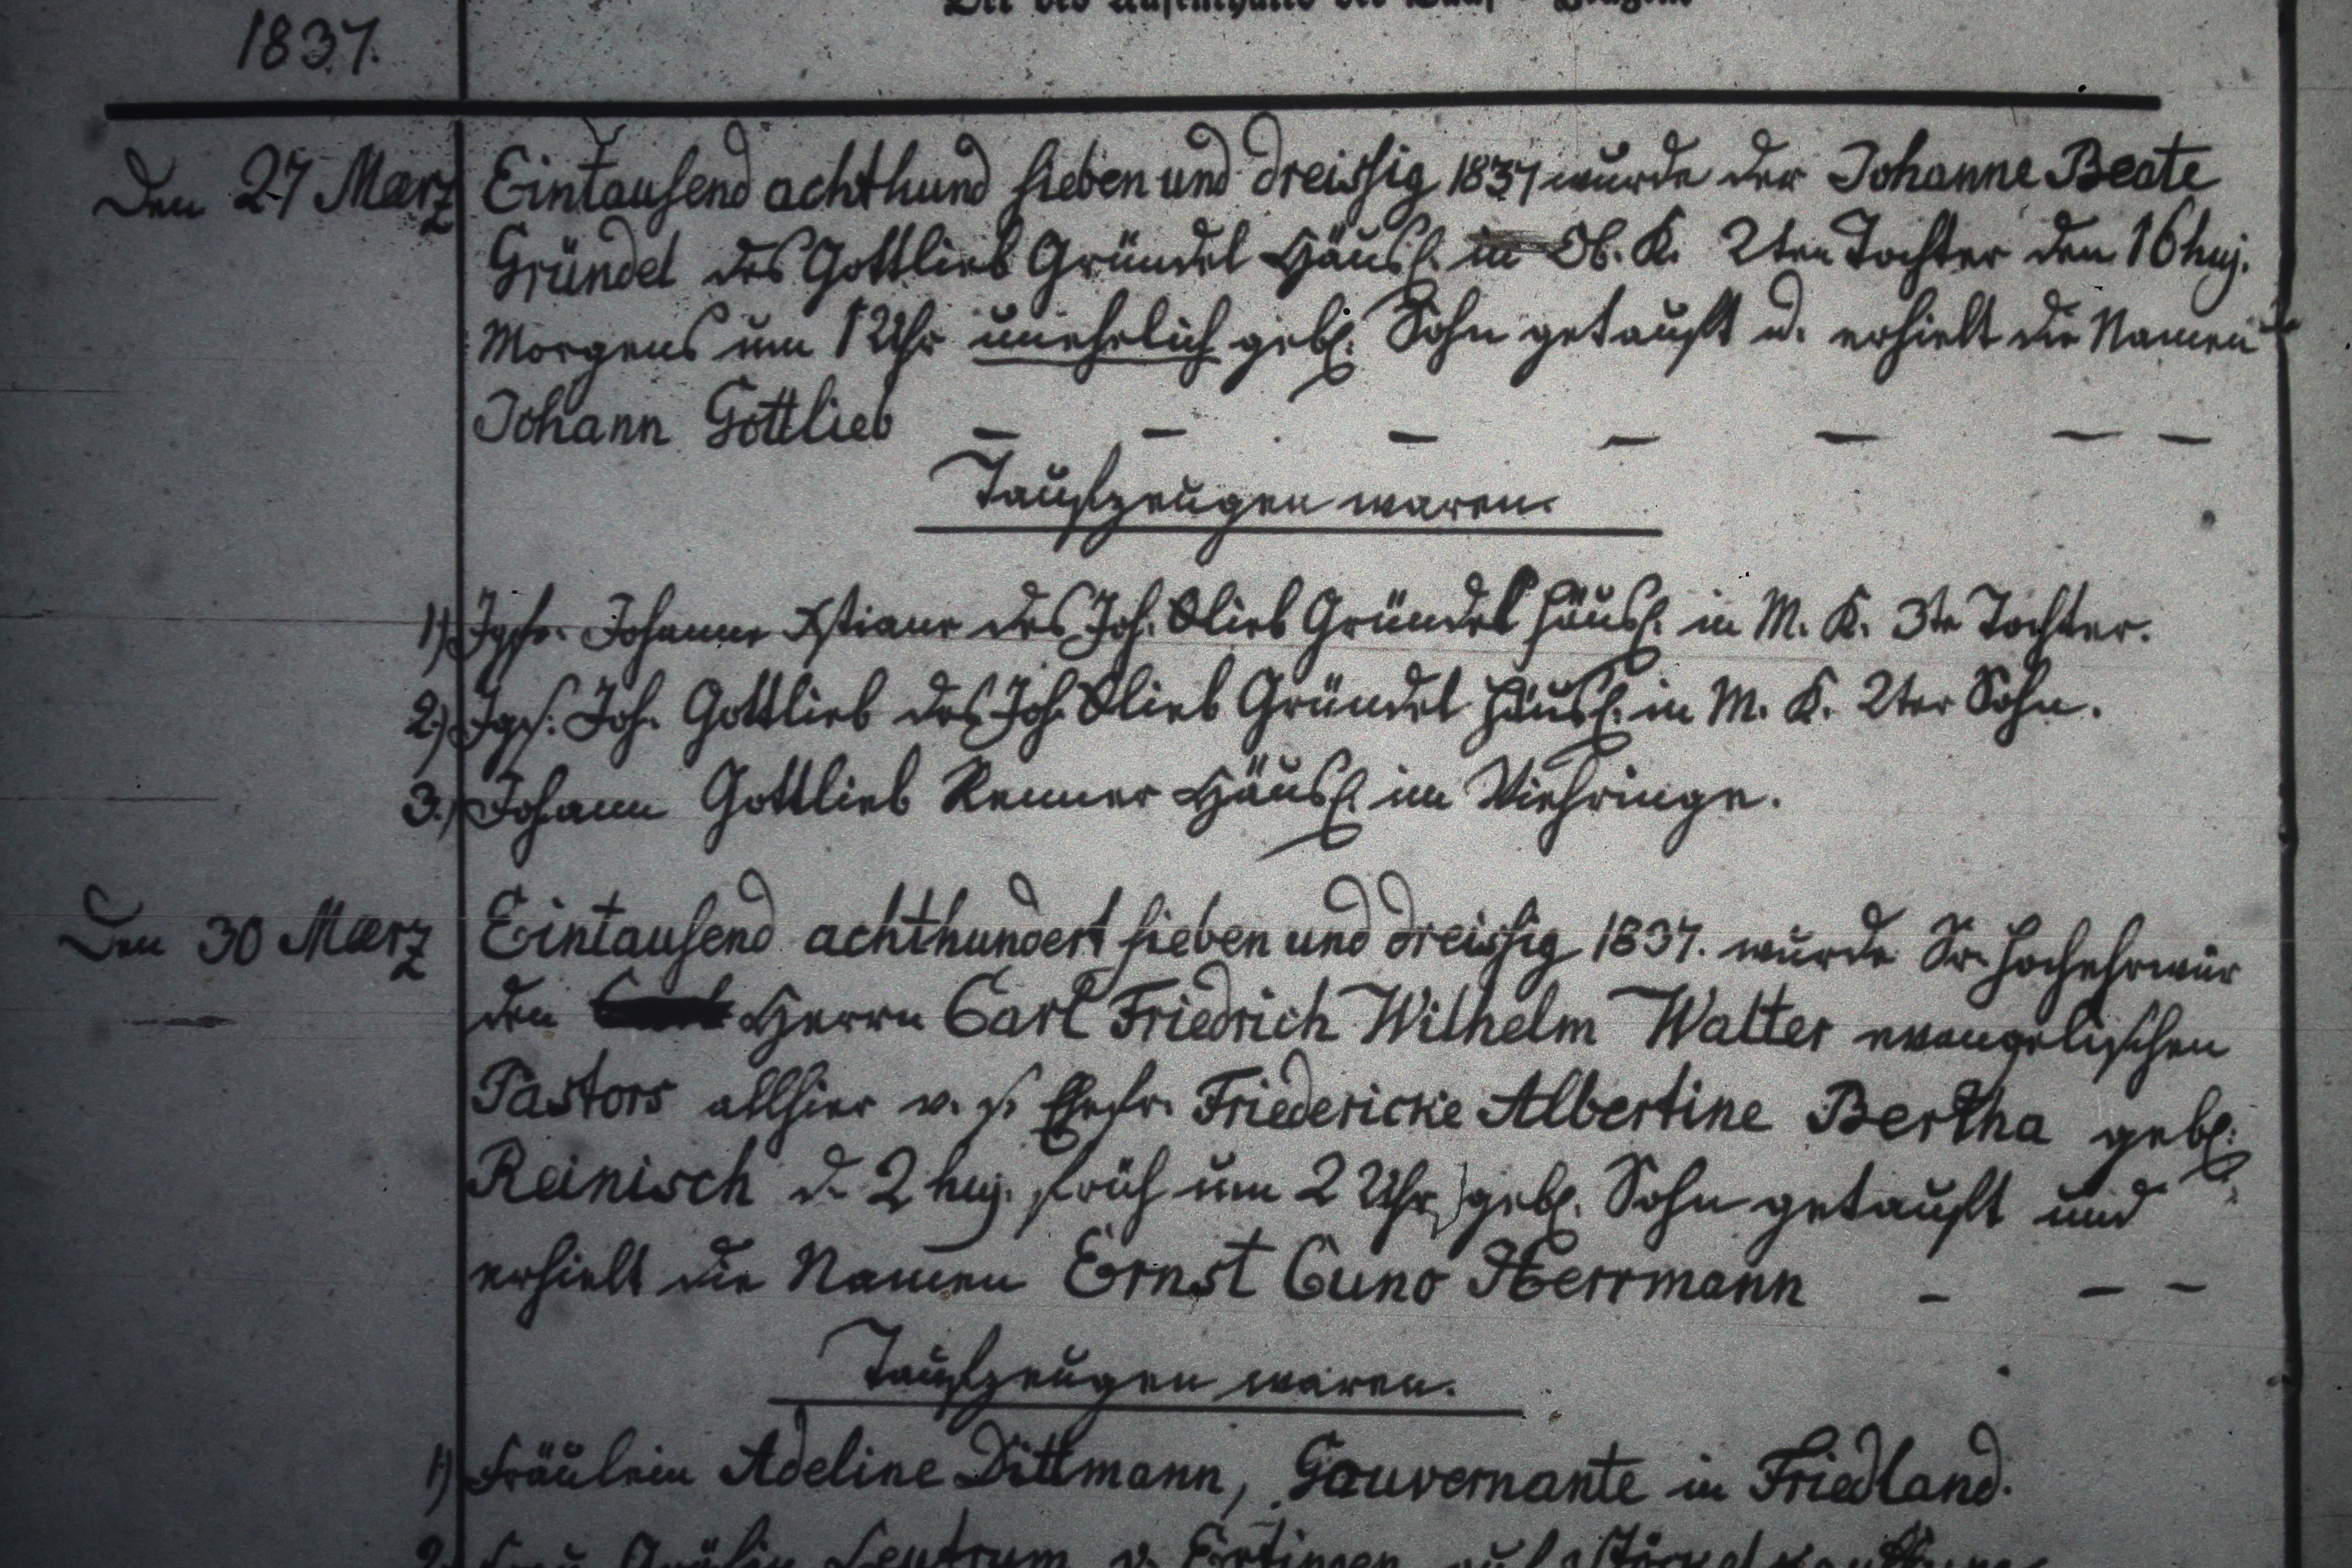 1837.
Den 27 Maerz Eintausend achthund sieben und dreissig 1837 wurde der Johanne Beate
Gründel des Gottlieb Gründel Häusl. in Ob. K. 2ten Tochter den 16 huj.
Morgens um 1 Uhr unehelich geb. Sohn getauft u. erhielt die Namen
Johann Gottlieb – – – – – – –
Taufzeugen waren.
1) Jgfr. Johanne Xstiane des Joh. Glieb Gründel Häusl. in M. K. 3te Tochter.
2.) Jgs. Joh. Gottlieb des Joh. Glieb Gründel Häusl. in M. K. 2ter Sohn.
3.) Johann Gottlieb Renner Häusl. im Viehringe.
Den 30 Maerz Eintausend achthundert sieben und dreissig 1837. wurde Sr. Hochehrwür
den Herrn Carl Friedrich Wilhelm Walter evangelischen
Pastors allhier v. s. Ehefr. Friedericke Albertine Bertha geb.
Reinisch d. 2 huj. früh um 2 Uhr) geb. Sohn getauft und
erhielt die Namen Ernst Cuno Herrmann – – –
Taufzeugen waren.
1) Fräulein Adeline Dittmann, Gouvernante in Friedland.
2. Frau Gräfin Leutrum v. Ertingen auf